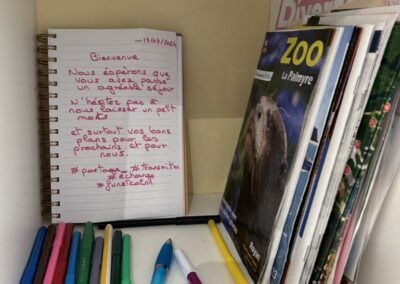 14/04/2024
Bienvenue
Nous espérons que
vous avez passé
un agréable séjour
N'hésitez pas à
nous laisser un petit
mots
et surtout vos bons
plans pour les
prochains et pour
nous.
#partage #transmition
#échange
ZOO
La Palmyre